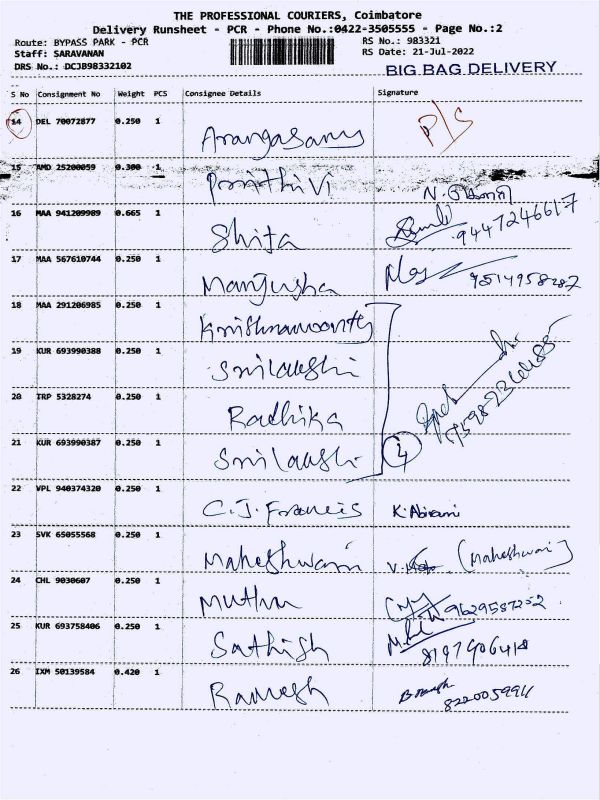 THE PROFESSIONAL COURIERS, Coimbatore
Delivery Runsheet - PCR - Phone No.:0422-3505555 - Page No.:2
Route: BYPASS PARK - PCR RS No.: 983321
Staff: SARAVANAN RS Date: 21-Jul-2022
DRS No.: DCJB98332102 BIG BAG DELIVERY
S No Consignment No Weight PCS Consignee Details Signature
14 DEL 70072877 0.250 1 Arangasamy P/S
15 AMD 25200059 0.300 1 Prrithivi
16 MAA 941209989 0.665 1 Shita 9447246617
17 MAA 567610744 0.250 1 Manjusha 9514958287
18 MAA 291206985 0.250 1 Krishnamoorthy
19 KUR 693990388 0.250 1 Srilakshi
20 TRP 5328274 0.250 1 Radhika
21 KUR 693990387 0.250 1 Srilakshi 4
22 VPL 940374320 0.250 1 C.J. Francis K. Abirami
23 SVK 65055568 0.250 1 Maheshwari (Maheshwari)
24 CHL 9030607 0.250 1 Muthu 9629587252
25 KUR 693758406 0.250 1 Sathish 8197906418
26 IXM 50139584 0.420 1 Ramesh